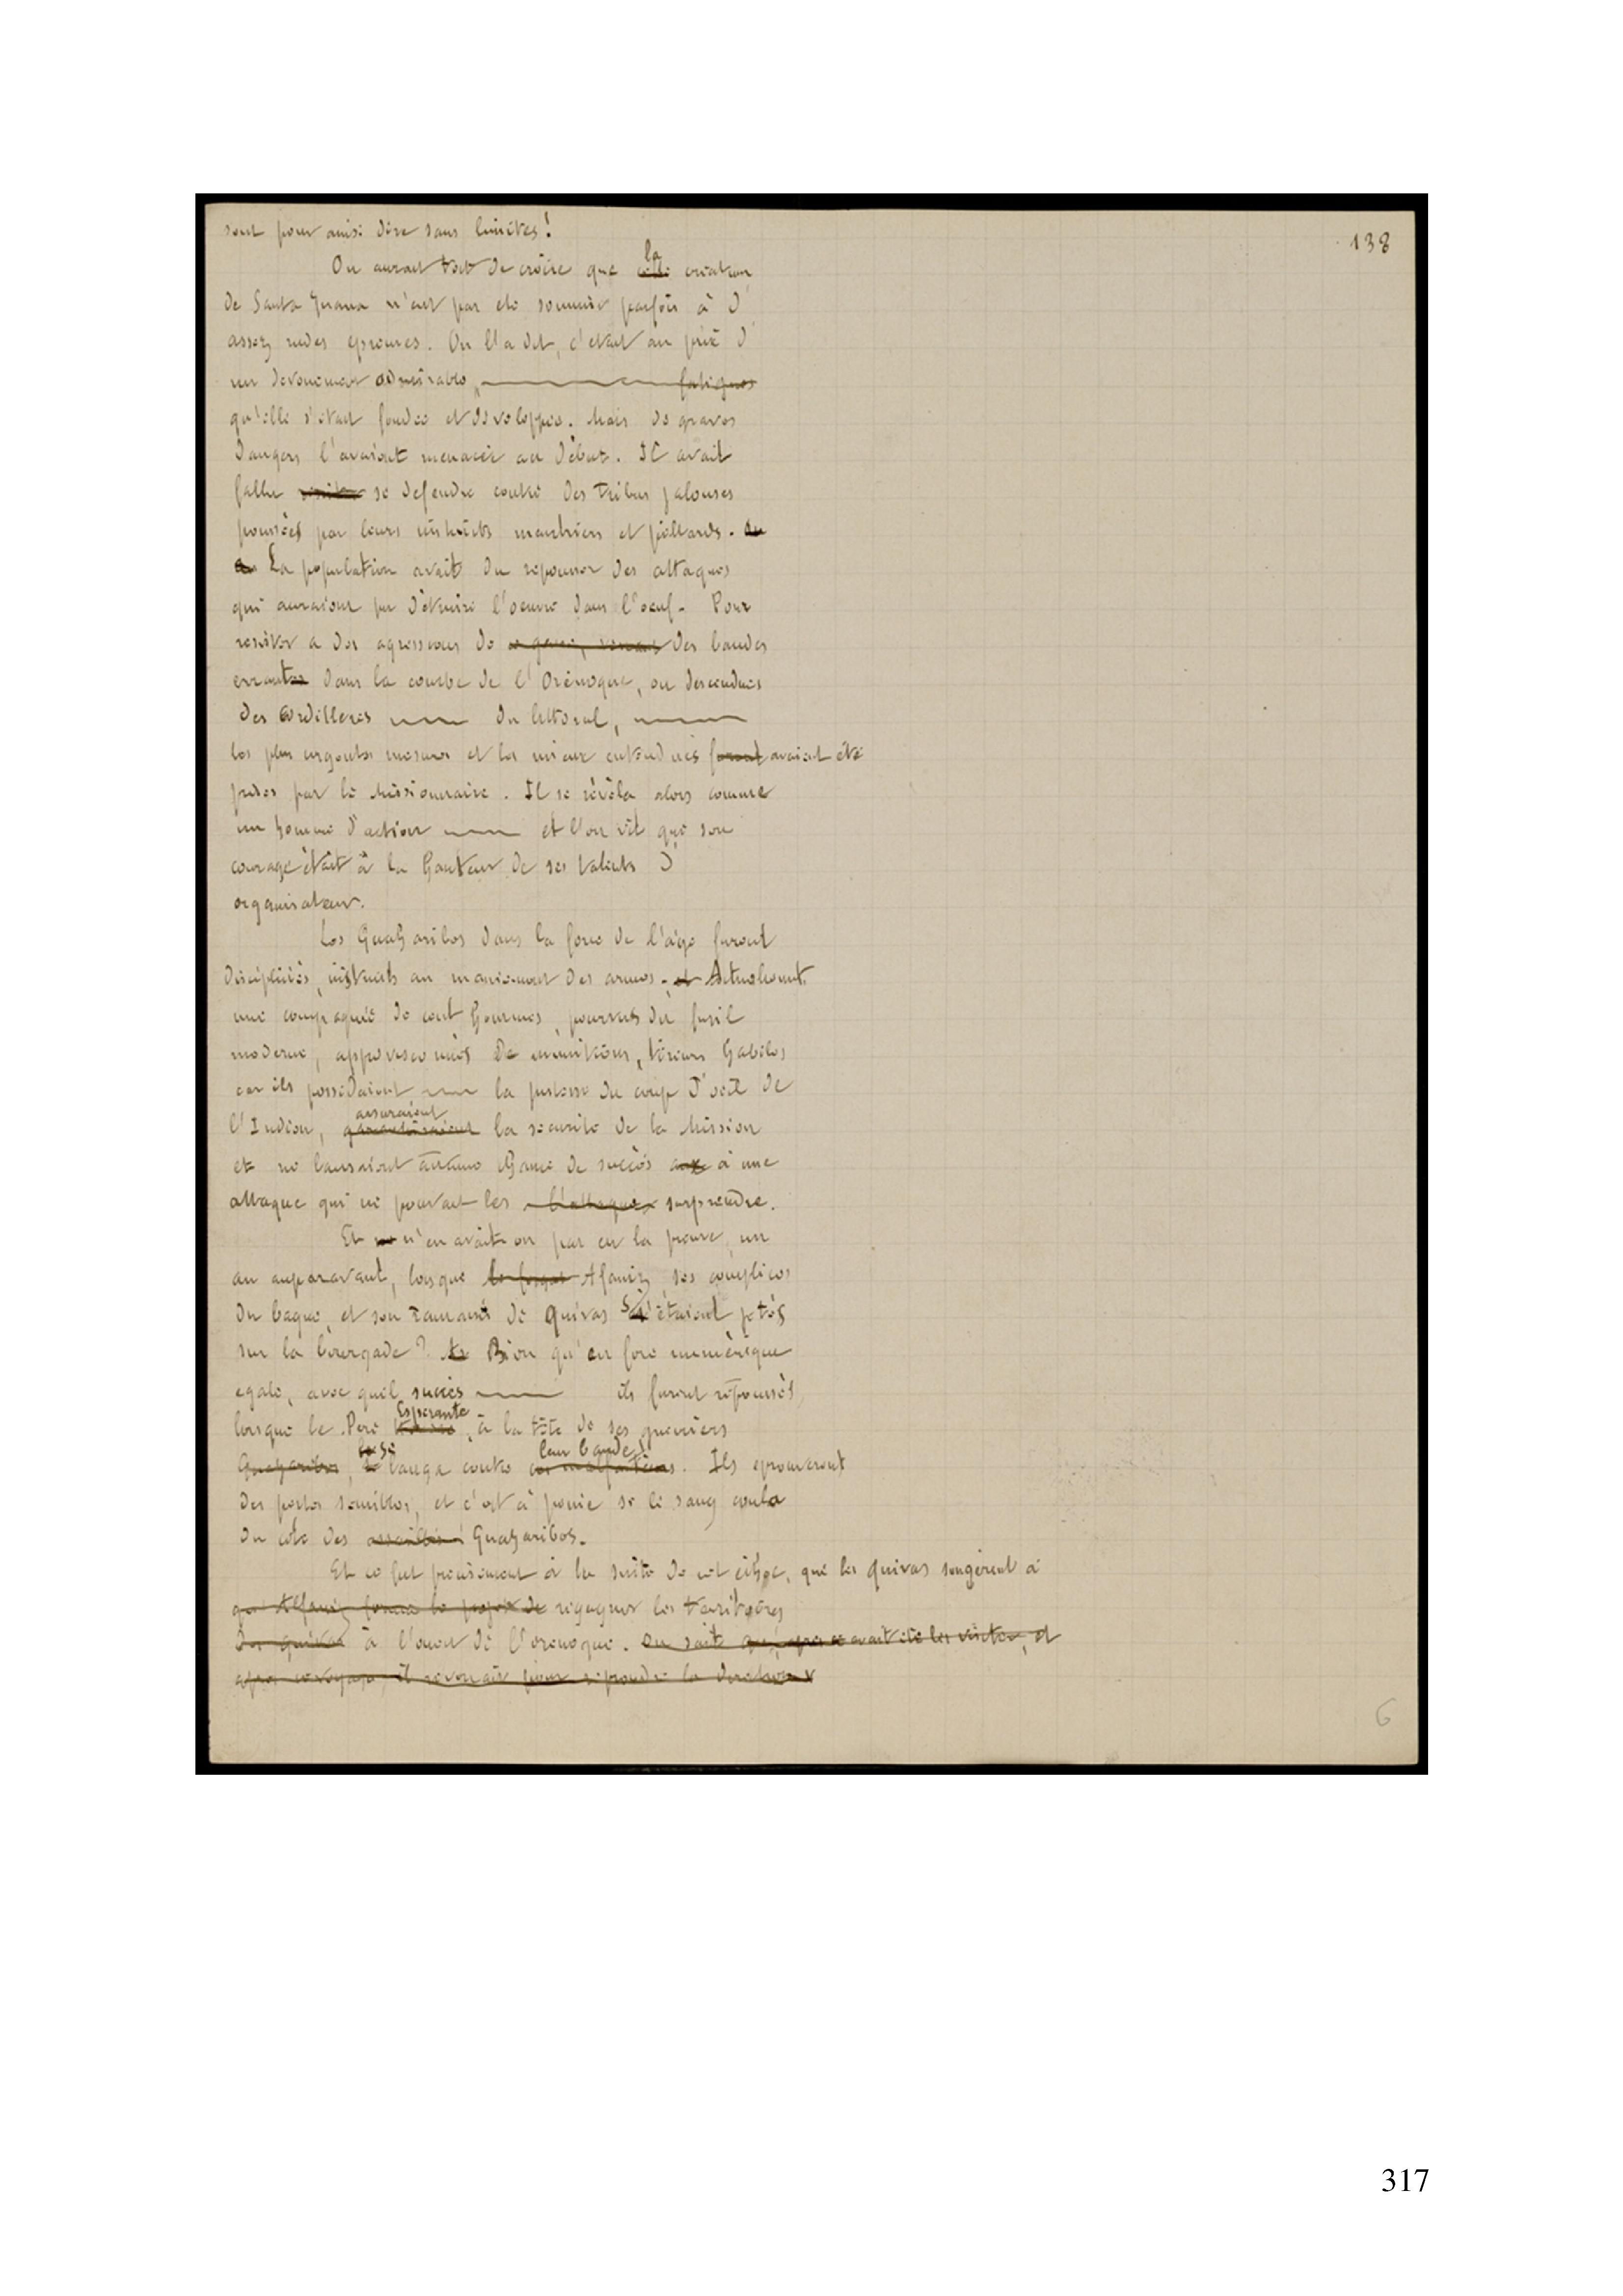 138
sont pour ainsi dire sans limites!
On aurait tort de croire que la création
de Santa Juana n'eut pas été soumise parfois à d
assez rudes épreuves. On l'a dit, c'était au prix d
un dévouement admirable, fatigues
qu'elle s'était fondée et développée. Mais de graves
dangers l'avaient menacée au début. Il avait
fallu se défendre contre des tribus jalouses
poussées par leurs instincts meurtriers et pillards.
La population avait du repousser des attaques
qui auraient pu détruire l'oeuvre dans l'oeuf. Pour
résister a des agressions de des bandes
errantes dans la courbe de l'Orénoque, ou descendues
des Cordilleres du littoral,
les plus urgentes mesures et les mieux entendues furent avaient été
prises par le Missionnaire. Il se révéla alors comme
un homme d'action et l'on vit que son
courage était à la hauteur de ses talents d
organisateur.
Les Guaharibos dans la force de l'âge furent
disciplinés, instruits au maniement des armes. et Actuellement.
une compagnie de cent hommes, pourvus du fusil
moderne, approvisionnés de munitions, tireurs habiles
car ils possédaient la justesse du coup d'oeil de
assuraient
l'Indien, garantissaient la sécurité de la Mission
et ne laissaient aucune chance de succès à une
attaque qui ne pouvait les l'attaque, surprendre.
Et n'en avait on pas eu la preuve, un
an auparavant, lorsque le forçat Alfaniz, ses complices
du bagne, et son ramassis de Quivas s'étaient jetés
sur la bourgade? Bien qu'en force numérique
egale, avec quel succès ils furent repoussés,
Esperante
lorsque le Père, à la tête de ses guerriers
leur bande
Guaharibos, se lança contre ces malfaiteurs. Ils éprouverent
des pertes sensibles, et c'est à peine si le sang coula
du côté des assaillis Guaharibos.
Et ce fut precisement à la suite de cet échec, que les Quivas songèrent à
qu'Alfaniz forma le projet de regagner les territoires
des Quivas à l'ouest de l'Orenoque. On sait
apres ce voyage, il revenait pour reprendre la direction
6
317